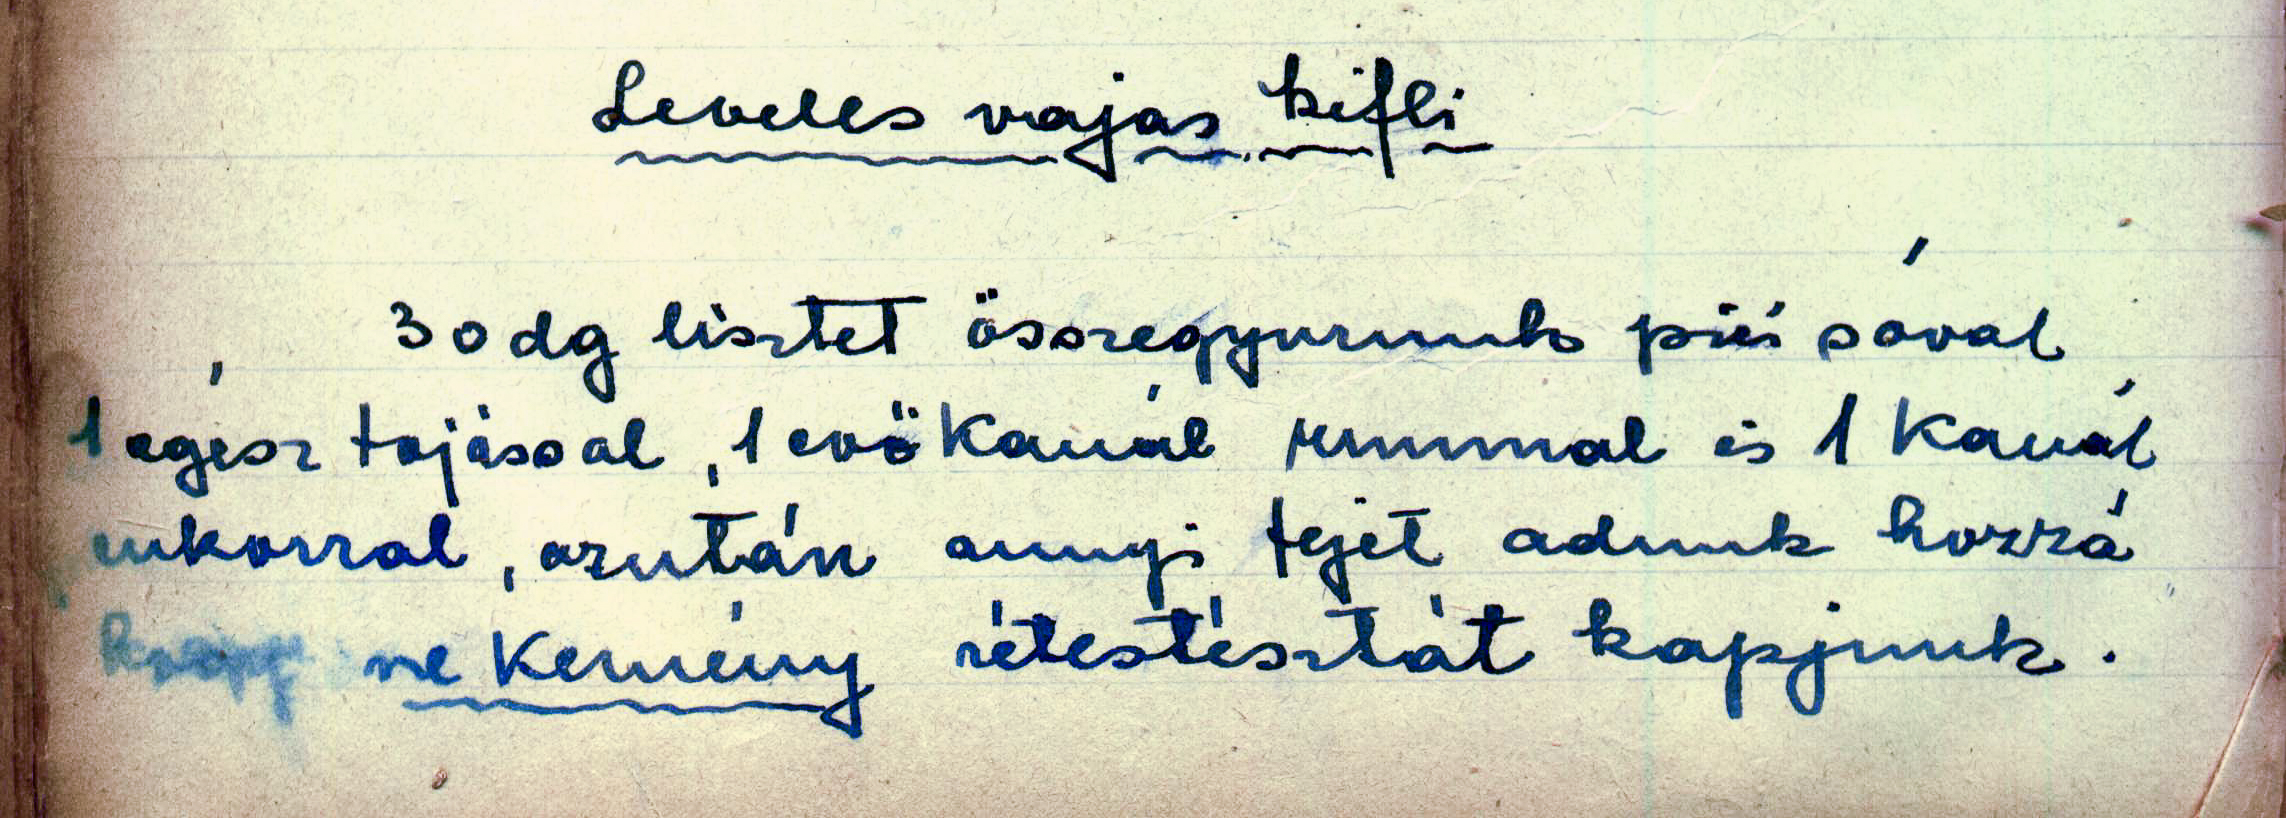 Leveles vajas kifli
30 dg lisztet összegyurunk pici sóval
1 egész tojással, 1 evőkanál rummal és 1 kanál
cukorral, azután annyi tejet adunk hozzá
hogy ne kemény rétestésztát kapjunk.